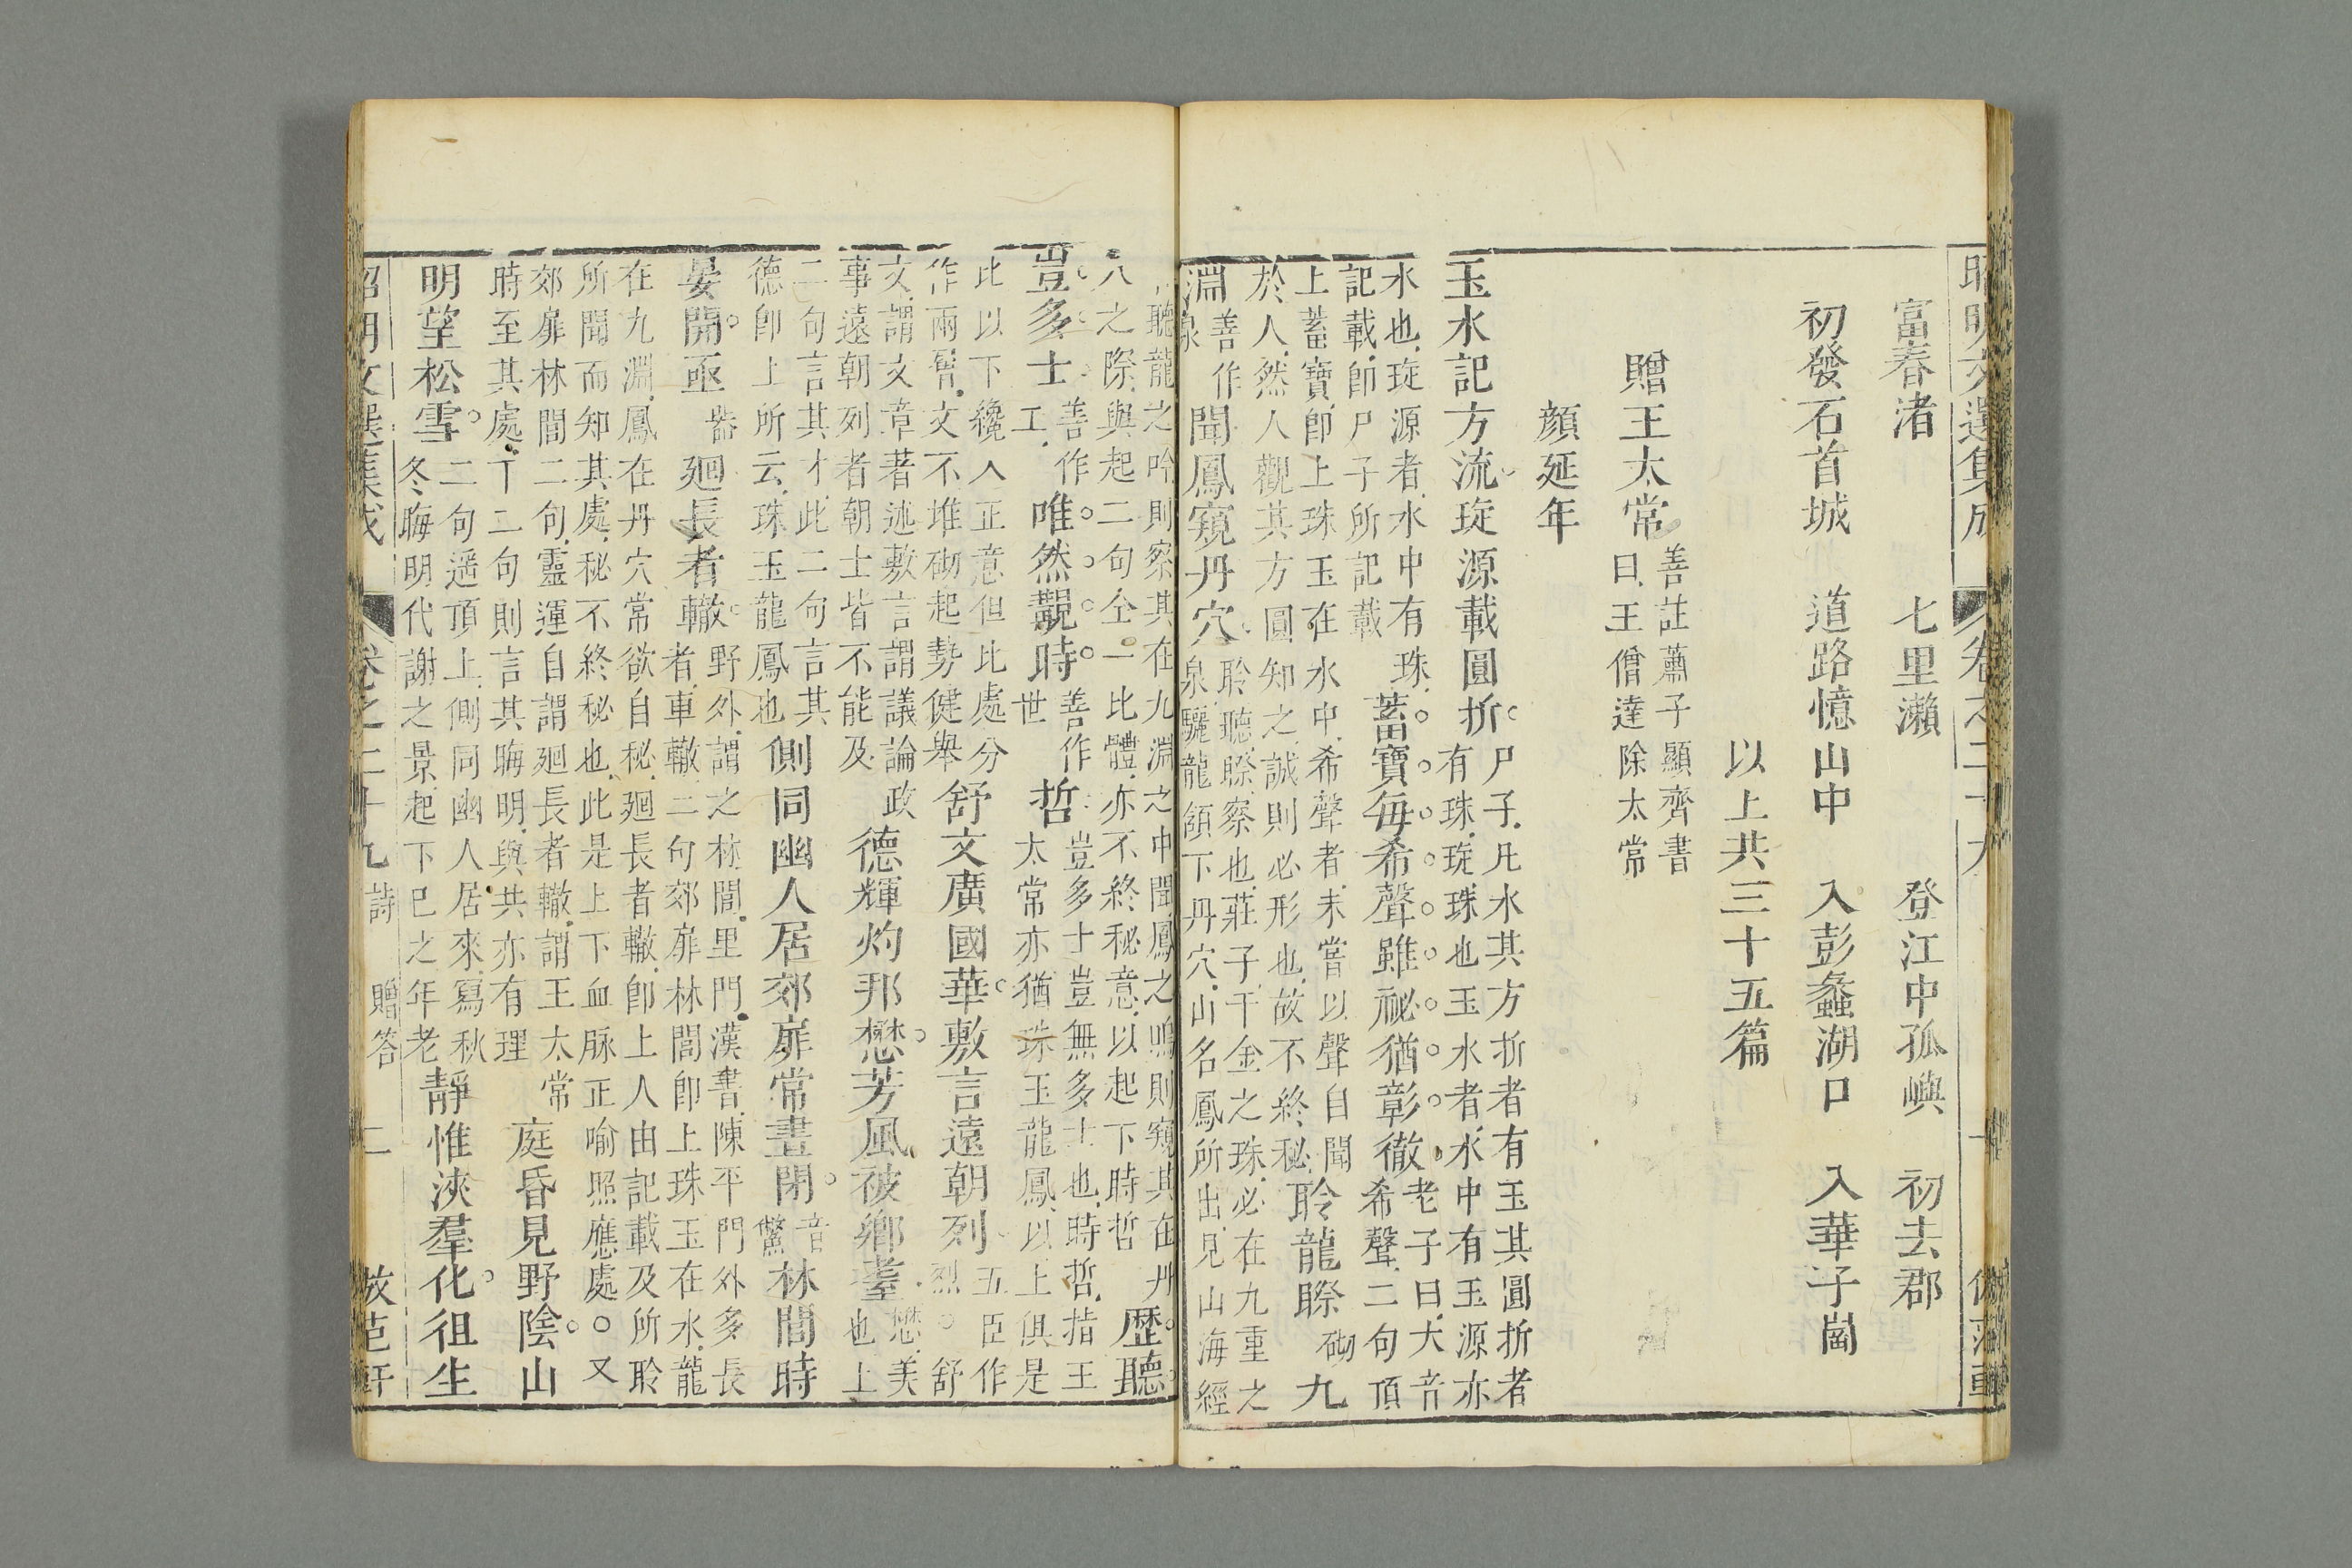 富春渚 七里瀨 登江中孤嶼 初去郡
初發石首城 道路憶山中 入彭蠡湖口 入華子崗
以上共三十五篇
贈王太常 善註蕭子顯齊書
曰王僧達除太常
顏延年
玉水記方流琁源載圓折 尸子凡水其方折者有玉其圓折者
有珠琁珠也玉水者水中有玉源亦
水也琁源者水中有珠
記載卽尸子所記載
蓄寶每希聲雖祕猶彰徹 老子曰大音
希聲二句頂
上蓄寶卽上珠玉在水中希聲者未嘗以聲自聞
於人然人觀其方圓知之誠則必形也故不終秘
聆龍䁮 砌 九
淵 善作
泉 聞鳳窺丹穴 聆聽䁮察也莊子千金之珠必在九重之
泉驪龍頷下丹穴山名鳳所出見山海經
聽龍之吟則察其在九淵之中聞鳳之鳴則窺其在丹
穴之際與起二句仝一比體亦不終秘意以起下時哲
歷聽
豈多士 善作
工 唯然覯時 善作
世 哲 豈多士豈無多士也時哲指王
太常亦猶珠玉龍鳳以上俱是
比以下纔入正意但比處分
作兩層文不堆砌起勢健舉
舒文廣國華敷言遠朝列 五臣作
烈 舒
文謂文章著述敷言謂議論政
事遠朝列者朝士皆不能及
德輝灼邦懋芳風被鄉耋 懋美
也上
二句言其才此二句言其
德卽上所云珠玉龍鳳也
側同幽人居郊扉常晝閉 音
鷩 林間時
晏開亟 器 廻長者轍 野外謂之林閭里門漢書陳平門外多長
者車轍二句郊扉林閭卽上珠玉在水龍
在九淵鳳在丹穴常欲自秘廻長者轍卽上人由記載及所聆
所聞而知其處秘不終秘也此是上下血脉正喻照應處○又
郊扉林間二句靈運自謂廻長者轍謂王太常
時至其處下二句則言其晦明與共亦有理
庭昏見野陰山
明望松雪 二句遥頂上側同幽人居來寫秋
冬晦明代謝之景起下已之年老
靜惟浹羣化徂生
詩 贈答 二